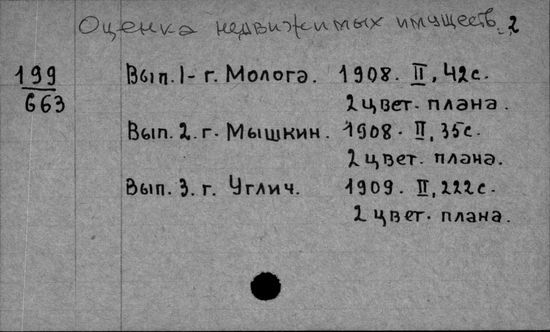 Оценка недвижимых имуществ. 2
199
663
Вып. 1 - г. Молога. 1908. II, 42 с.
2 цвет. плана.
Вып. 2. г. Мышкин. 1908. II, 35 с.
2 цвет. плана.
Вып. 3. г. Углич. 1909. II, 222 с.
2 цвет. плана.